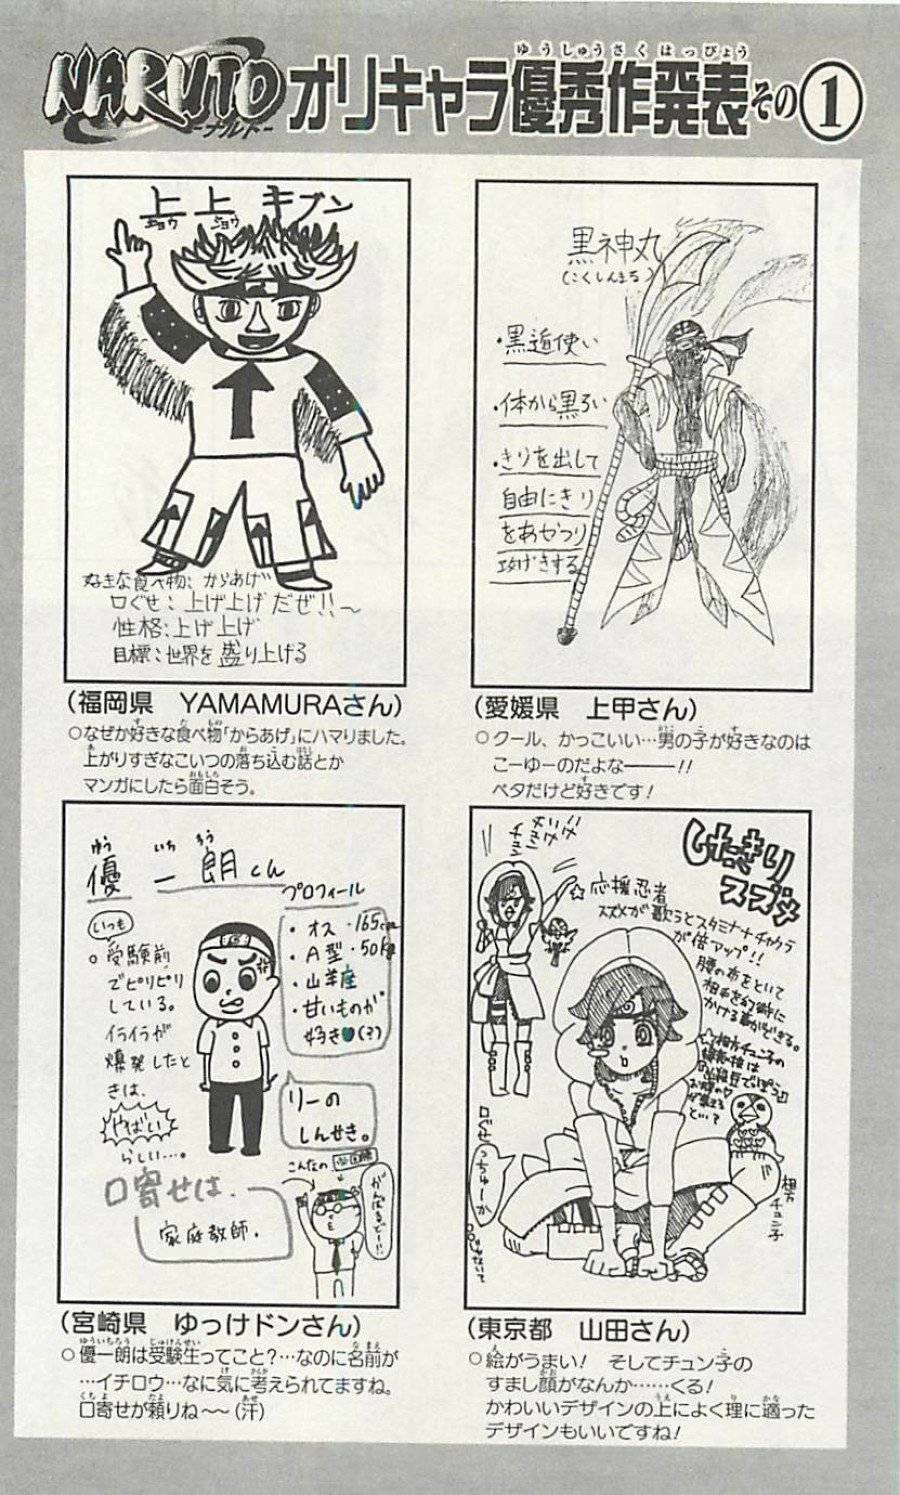 NARUTO
-ナルト-
オリキャラ優秀作発表その1
ゆうしゅうさくはっぴょう
上上 キブン
ジョウ ジョウ
好きな食べ物: からあげ
口ぐせ: 上げ上げだぜ!!~
性格: 上げ上げ
目標: 世界を盛り上げる
(福岡県 YAMAMURAさん)
○なぜか好きな食べ物「からあげ」にハマりました。
上がりすぎなこいつの落ち込む話とか
マンガにしたら面白そう。
黒神丸
(こくしんまる)
・黒遁使い
・体から黒い
・きりを出して
自由にきり
をあやつり
攻げきする
(愛媛県 上甲さん)
○クール、かっこいい…男の子が好きなのは
こーゆーのだよな———!!
ベタだけど好きです!
優一朗くん
ゆう いち ろう
いつも
○受験前
でピリピリ
している。
イライラが
爆発したと
きは、
やばい
らしい…。
プロフィール
・オス ・165cm
・A型 ・50kg
・山羊座
・甘いものが
好き♥(?)
リーの
しんせき。
口寄せは、
家庭教師.
こんなの
がんばるぞー!!
(宮崎県 ゆっけドンさん)
○優一朗は受験生ってこと?…なのに名前が
…イチロウ…なに気に考えられてますね。
口寄せが頼りね~~(汗)
したきり
スズメ
☆応援忍者
スズメが歌うとスタミナチャクラ
が倍アップ!!
腰の布をといて
相手を幻術に
かける事ができる。
相方チュン子
(東京都 山田さん)
○絵がうまい! そしてチュン子の
すまし顔がなんか……くる!
かわいいデザインの上によく理に適った
デザインもいいですね!